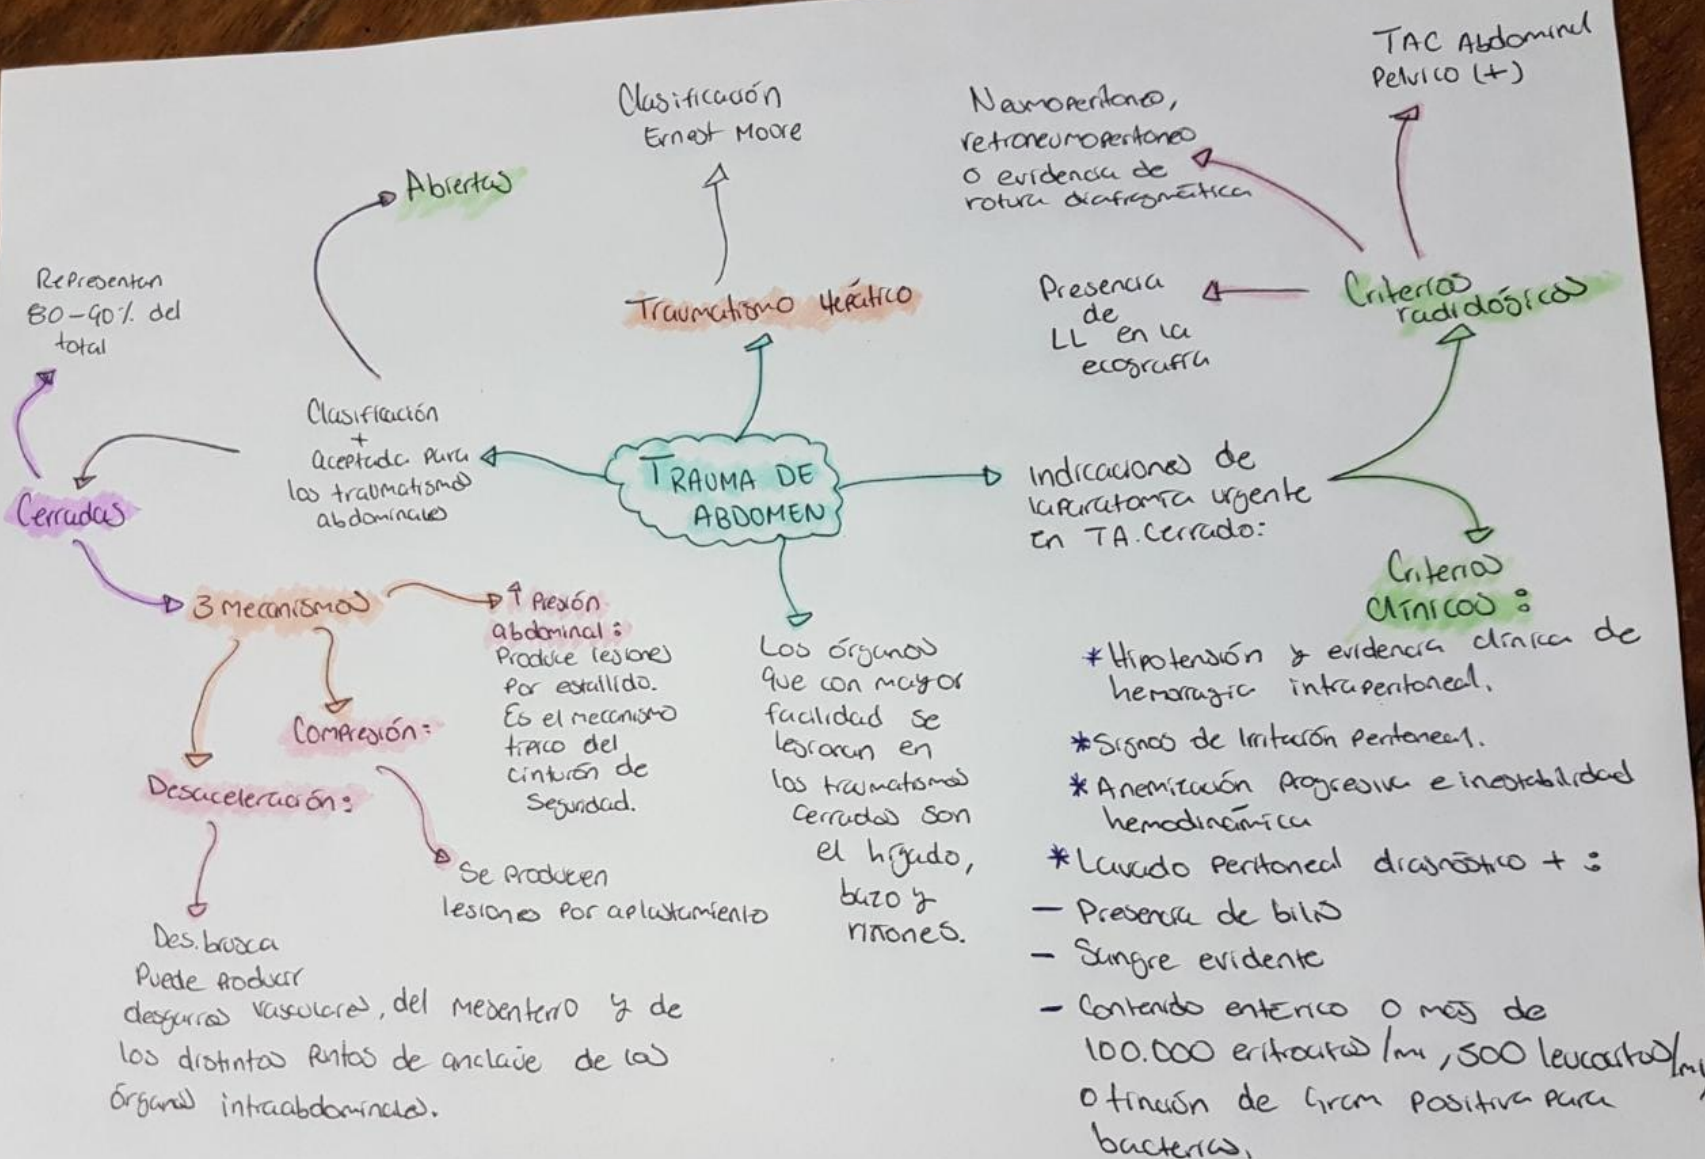 TRAUMA DE
ABDOMEN
Traumatismo Hepático
Clasificación
Ernest Moore
Clasificación
+
aceptada para
los traumatismos
abdominales
Abiertas
Cerradas
Representan
80-90% del
total
3 mecanismos
↑ Presión
abdominal:
Produce lesiones
por estallido.
Es el mecanismo
típico del
cinturón de
Seguridad.
Compresión:
Se producen
lesiones por aplastamiento
Desaceleración:
Des. brusca
Puede producir
desgarros vasculares, del mesenterio y de
los distintos puntos de anclaje de los
órganos intraabdominales.
Los órganos
que con mayor
facilidad se
lesionan en
los traumatismos
cerrados son
el hígado,
bazo y
riñones.
Indicaciones de
laparatomía urgente
en TA. Cerrado:
Criterios
radiológicos
TAC Abdominal
Pelvico (+)
Neumoperitoneo,
retroneumoperitoneo
o evidencia de
rotura diafragmática
Presencia
de
LL en la
ecografía
Criterios
Clínicos:
* Hipotensión y evidencia clínica de
hemorragia intraperitoneal.
* Signos de Irritación peritoneal.
* Anemización progresiva e inestabilidad
hemodinámica
* Lavado peritoneal diagnóstico + :
- Presencia de bilis
- Sangre evidente
- Contenido entérico o mas de
100.000 eritrocitos/ml, 500 leucocitos/ml
o tinción de Gram positiva para
bacterias.